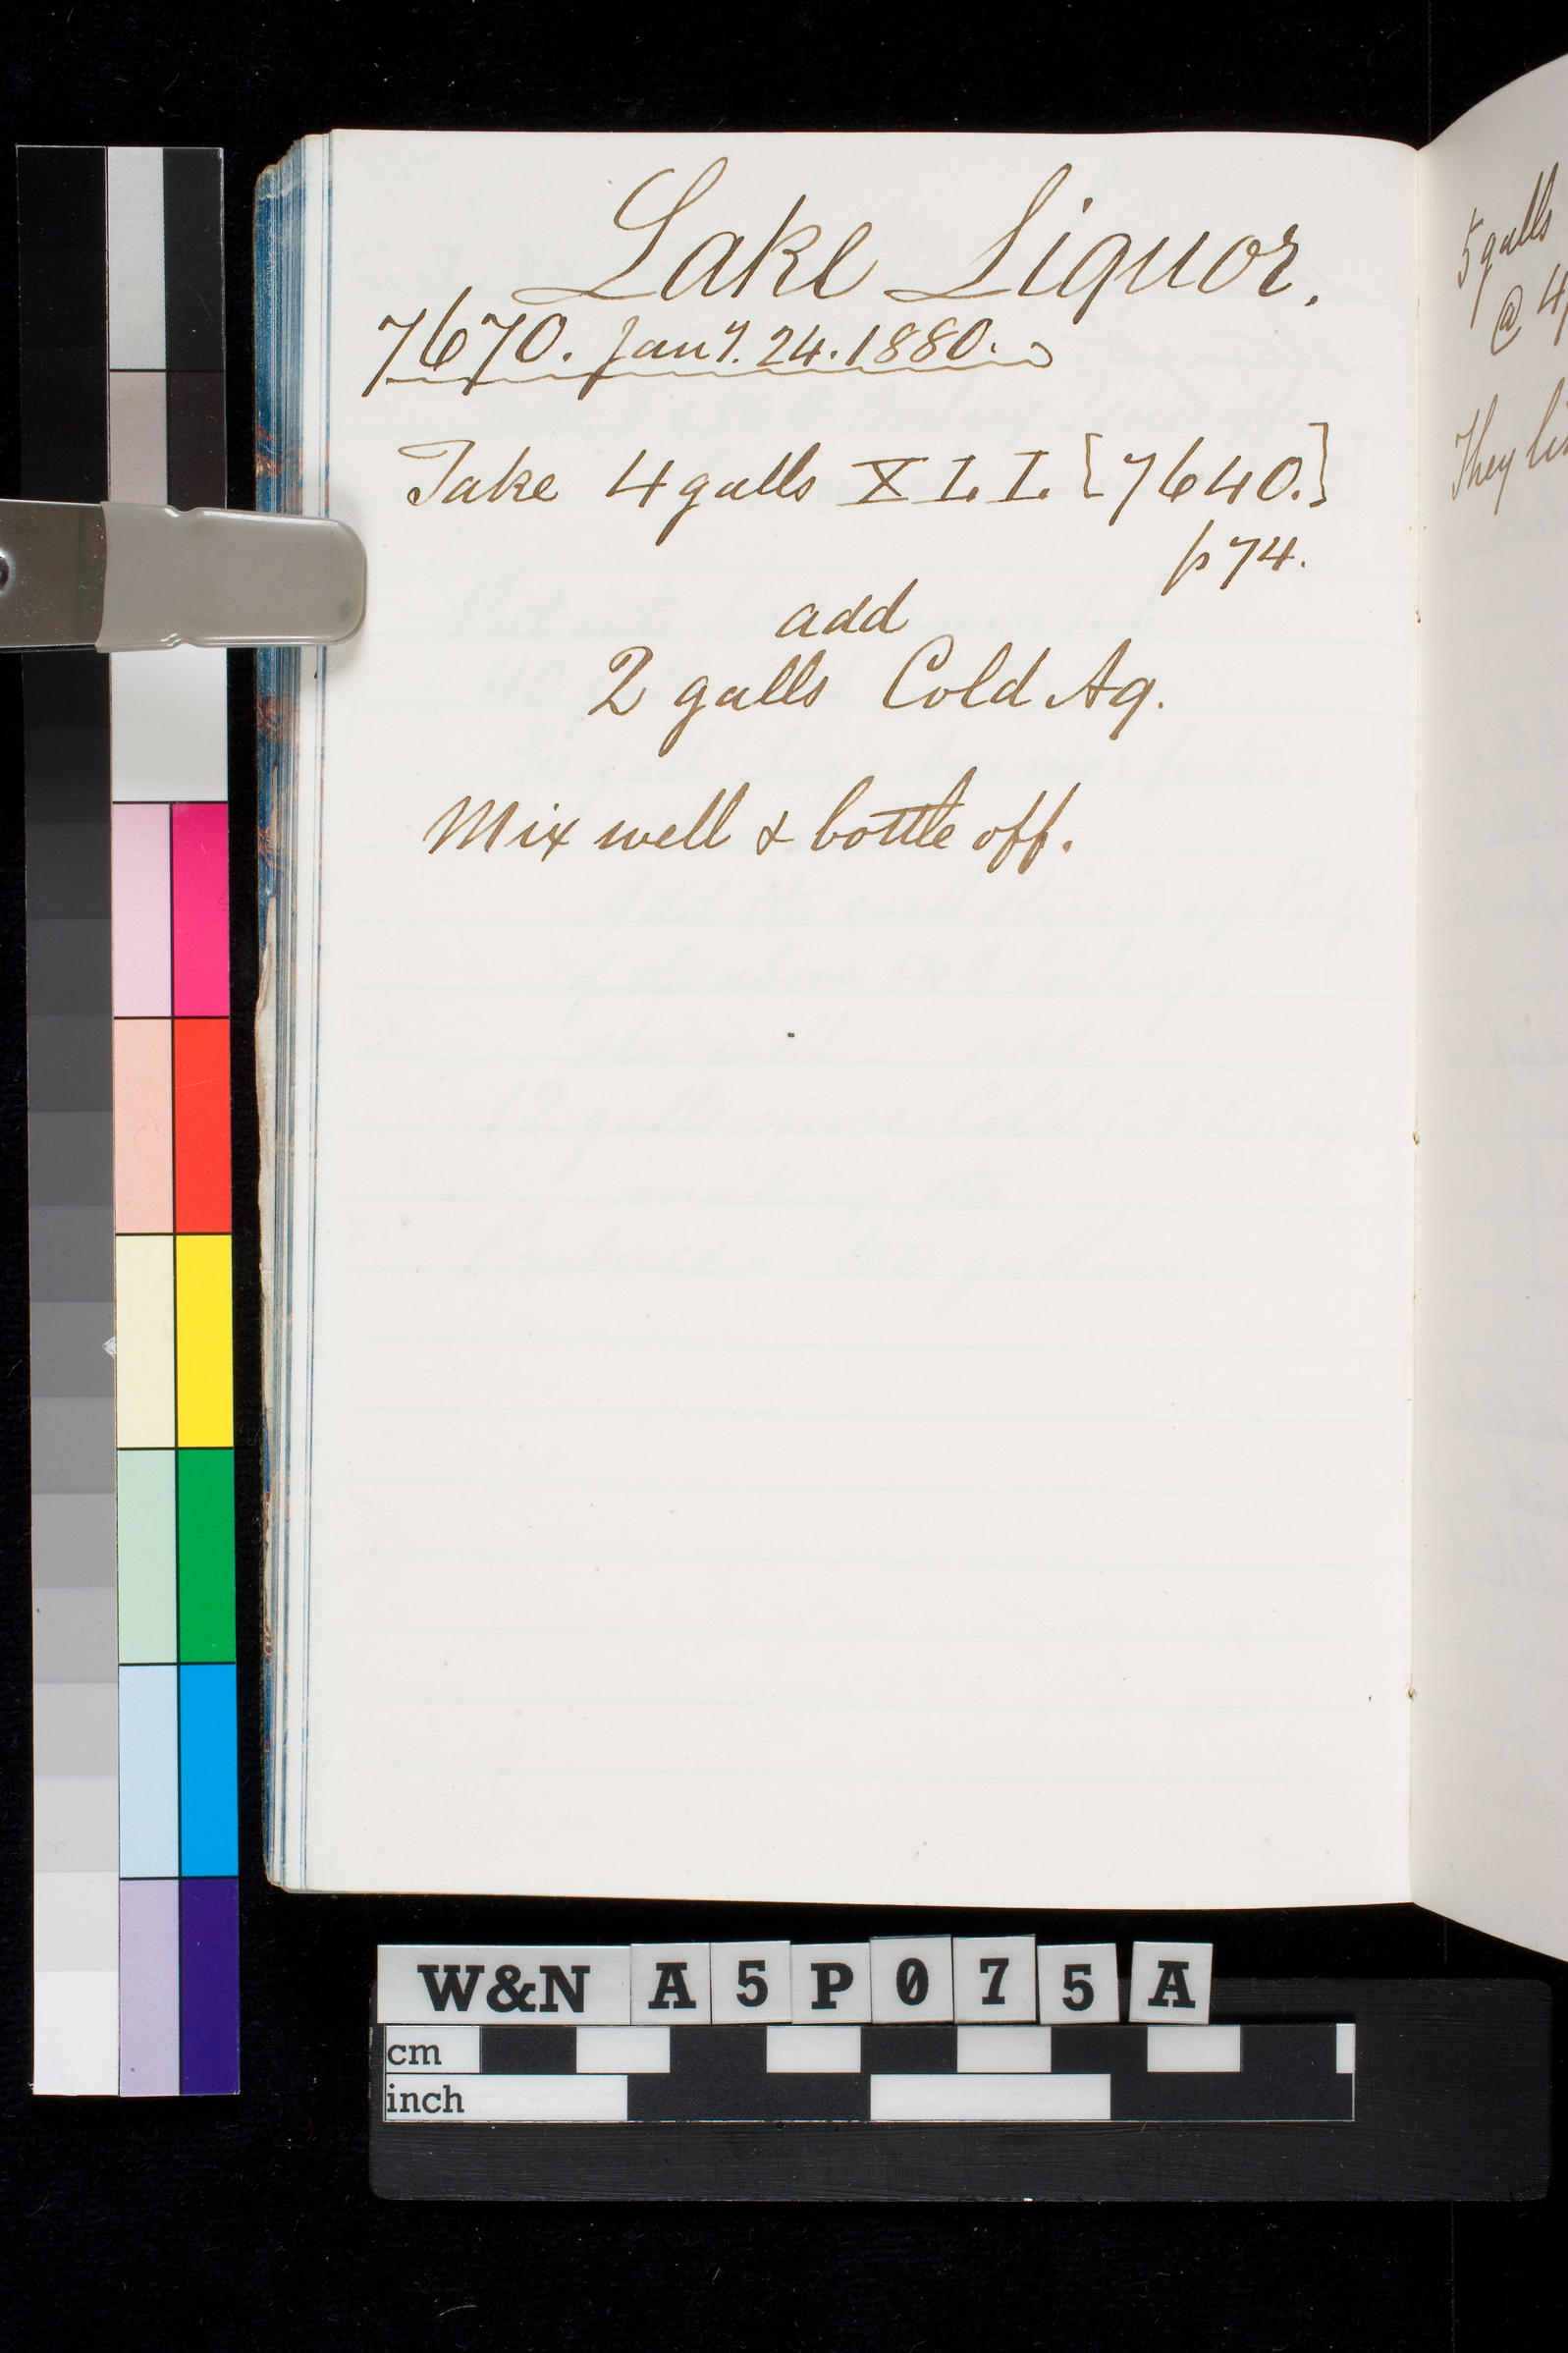 Lake Liquor.
7670. Jany. 24. 1880.
Take 4 galls X L. I. [7640.]
p 74.
add
2 galls Cold Aq.
Mix well & bottle off.
5 galls
@ 4
They
W&N A5P075A
cm
inch